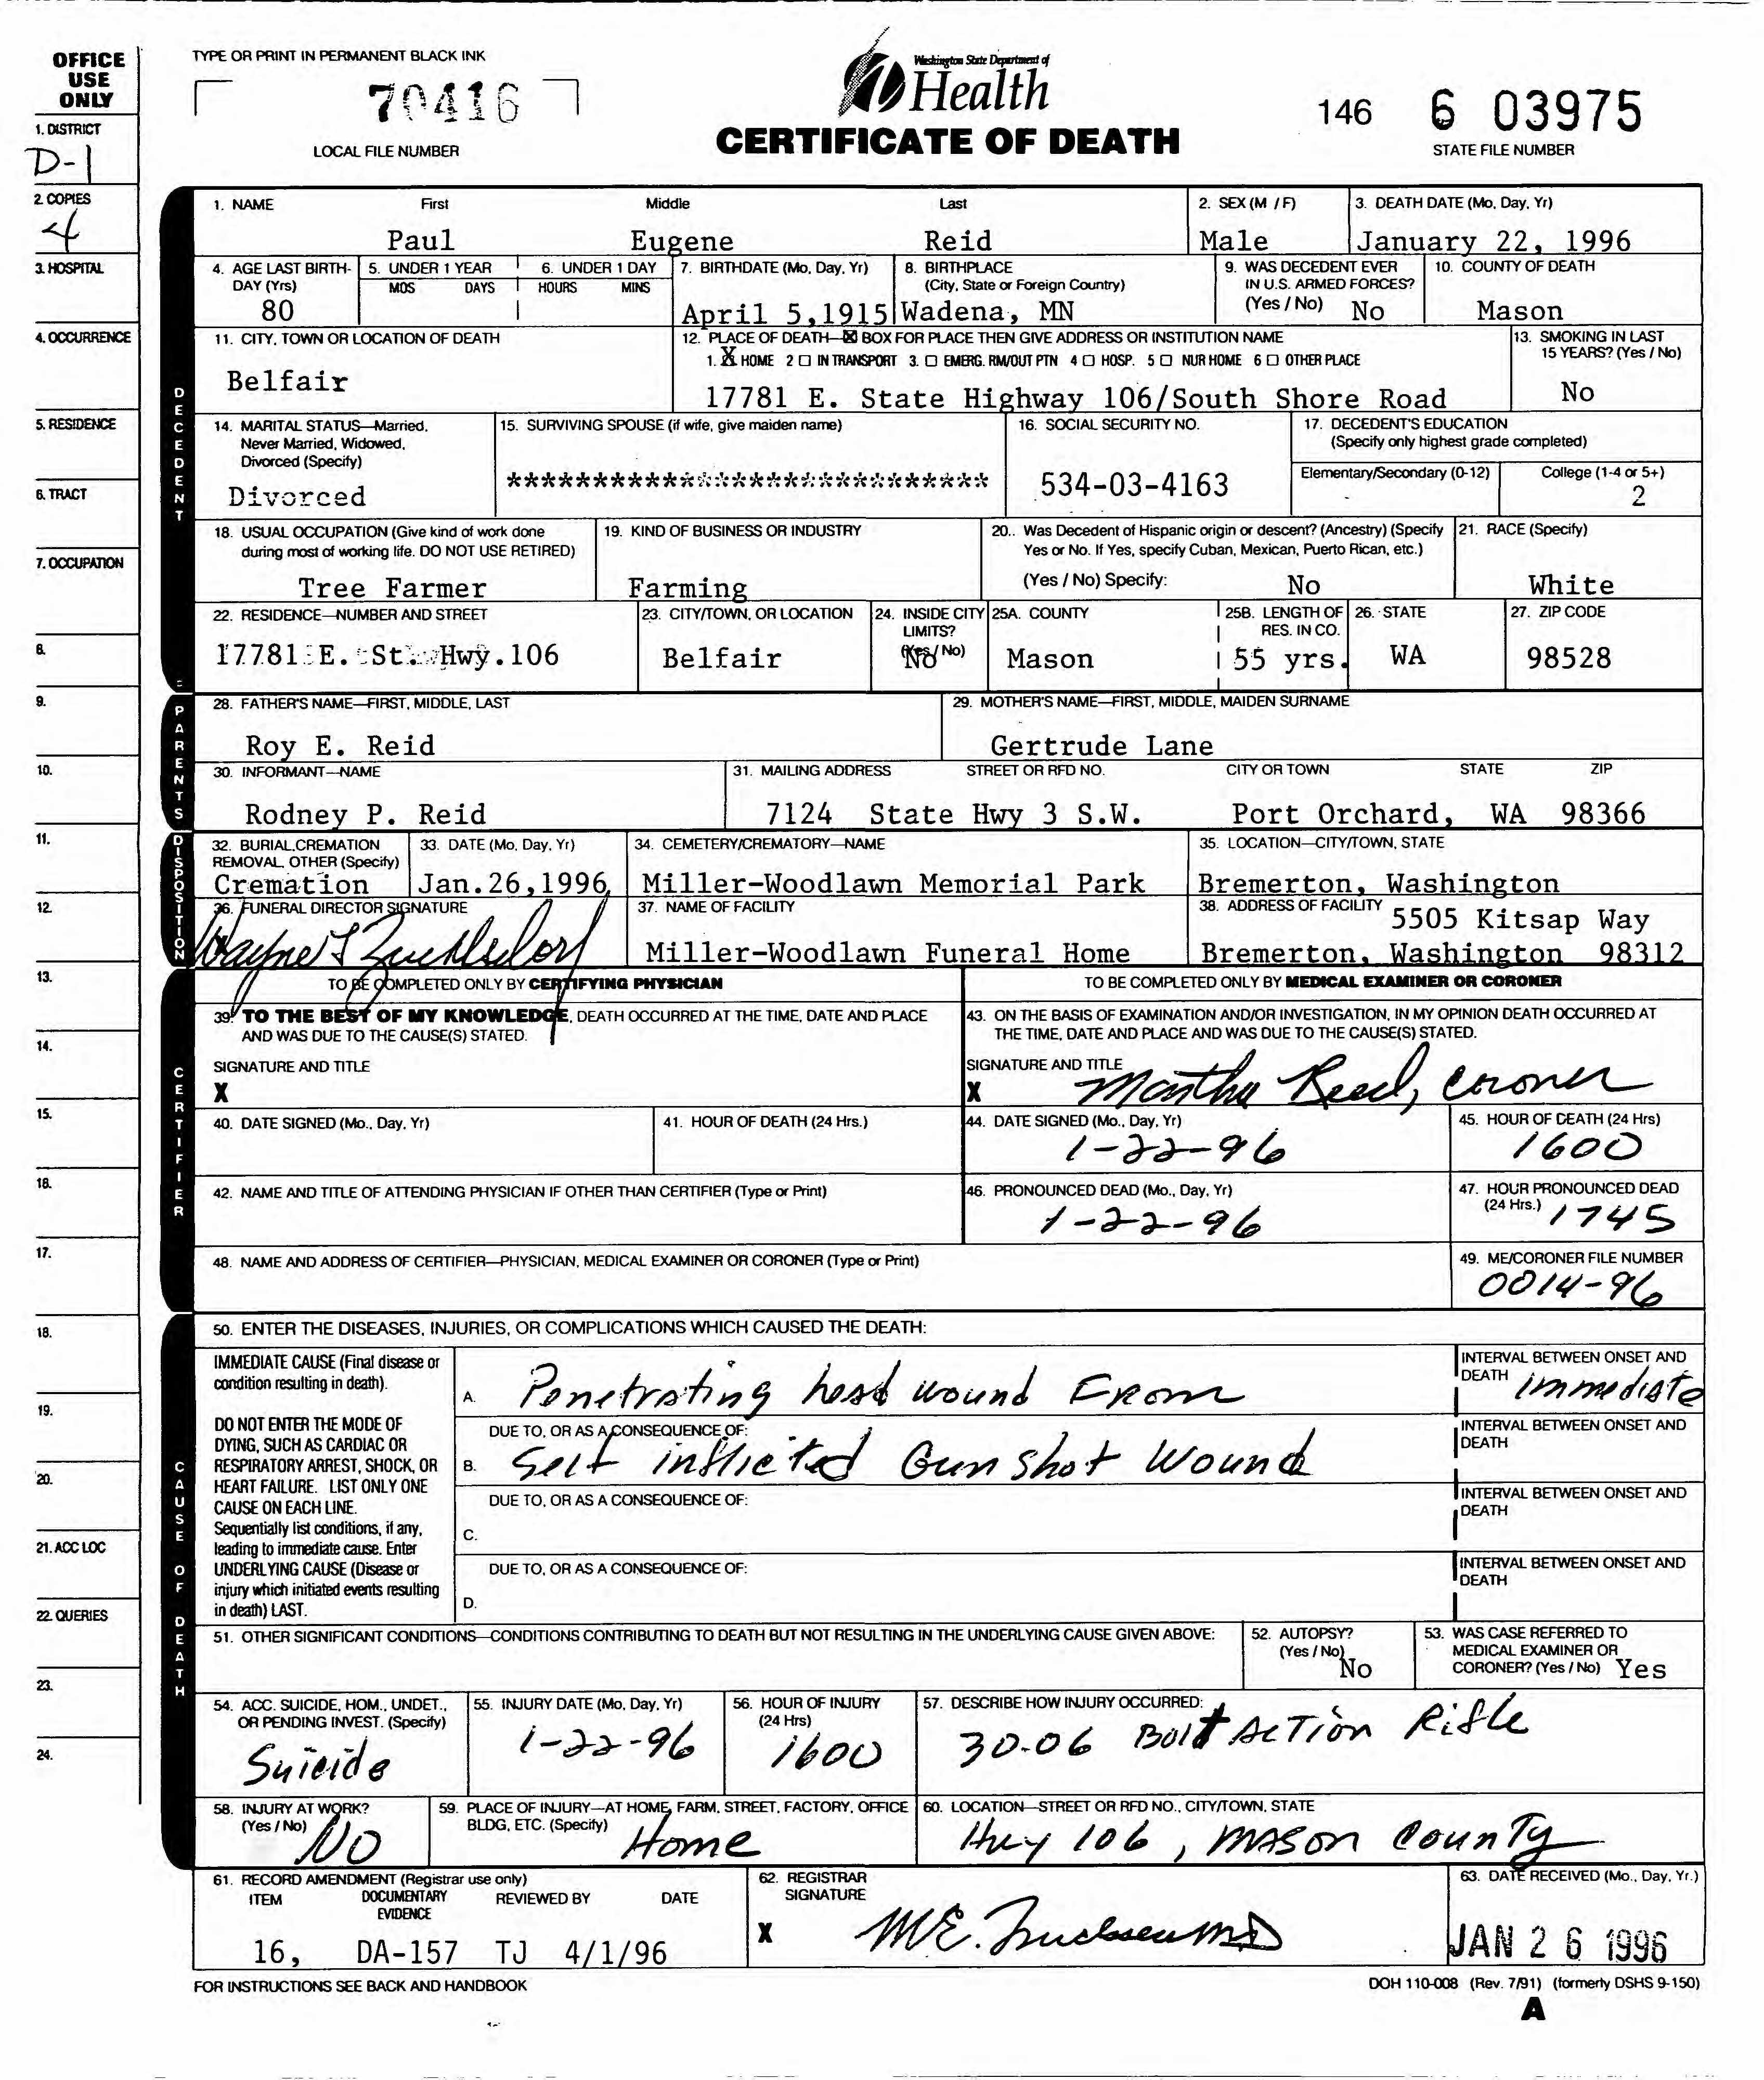 OFFICE USE ONLY
TYPE OR PRINT IN PERMANENT BLACK INK
70416
LOCAL FILE NUMBER
Washington State Department of
Health
CERTIFICATE OF DEATH
146 6 03975
STATE FILE NUMBER
1. DISTRICT
D-1
2. COPIES
4
3. HOSPITAL
4. OCCURRENCE
5. RESIDENCE
6. TRACT
7. OCCUPATION
8.
9.
10.
11.
12.
13.
14.
15.
16.
17.
18.
19.
20.
21. ACC LOC
22. QUERIES
23.
24.
DECEDENT
1. NAME First Middle Last
Paul Eugene Reid
2. SEX (M / F)
Male
3. DEATH DATE (Mo, Day, Yr)
January 22, 1996
4. AGE LAST BIRTH-
DAY (Yrs)
80
5. UNDER 1 YEAR
MOS DAYS
6. UNDER 1 DAY
HOURS MINS
7. BIRTHDATE (Mo, Day, Yr)
April 5,1915
8. BIRTHPLACE
(City, State or Foreign Country)
Wadena, MN
9. WAS DECEDENT EVER
IN U.S. ARMED FORCES?
(Yes / No) No
10. COUNTY OF DEATH
Mason
11. CITY, TOWN OR LOCATION OF DEATH
Belfair
12. PLACE OF DEATH—☒ BOX FOR PLACE THEN GIVE ADDRESS OR INSTITUTION NAME
1. ☒ HOME 2 ☐ IN TRANSPORT 3. ☐ EMERG. RM/OUT PTN 4 ☐ HOSP. 5 ☐ NUR HOME 6 ☐ OTHER PLACE
17781 E. State Highway 106/South Shore Road
13. SMOKING IN LAST
15 YEARS? (Yes / No)
No
14. MARITAL STATUS—Married,
Never Married, Widowed,
Divorced (Specify)
Divorced
15. SURVIVING SPOUSE (if wife, give maiden name)
****************************
16. SOCIAL SECURITY NO.
534-03-4163
17. DECEDENT'S EDUCATION
(Specify only highest grade completed)
Elementary/Secondary (0-12) College (1-4 or 5+)
2
18. USUAL OCCUPATION (Give kind of work done
during most of working life. DO NOT USE RETIRED)
Tree Farmer
19. KIND OF BUSINESS OR INDUSTRY
Farming
20.. Was Decedent of Hispanic origin or descent? (Ancestry) (Specify
Yes or No. If Yes, specify Cuban, Mexican, Puerto Rican, etc.)
(Yes / No) Specify: No
21. RACE (Specify)
White
22. RESIDENCE—NUMBER AND STREET
17781 E. St. Hwy.106
23. CITY/TOWN, OR LOCATION
Belfair
24. INSIDE CITY
LIMITS?
(Yes / No)
No
25A. COUNTY
Mason
25B. LENGTH OF
RES. IN CO.
55 yrs.
26. STATE
WA
27. ZIP CODE
98528
PARENTS
28. FATHER'S NAME—FIRST, MIDDLE, LAST
Roy E. Reid
29. MOTHER'S NAME—FIRST, MIDDLE, MAIDEN SURNAME
Gertrude Lane
30. INFORMANT—NAME
Rodney P. Reid
31. MAILING ADDRESS STREET OR RFD NO. CITY OR TOWN STATE ZIP
7124 State Hwy 3 S.W. Port Orchard, WA 98366
DISPOSITION
32. BURIAL,CREMATION
REMOVAL, OTHER (Specify)
Cremation
33. DATE (Mo, Day, Yr)
Jan.26,1996
34. CEMETERY/CREMATORY—NAME
Miller-Woodlawn Memorial Park
35. LOCATION—CITY/TOWN, STATE
Bremerton, Washington
36. FUNERAL DIRECTOR SIGNATURE
Wayne
37. NAME OF FACILITY
Miller-Woodlawn Funeral Home
38. ADDRESS OF FACILITY 5505 Kitsap Way
Bremerton, Washington 98312
CERTIFIER
TO BE COMPLETED ONLY BY CERTIFYING PHYSICIAN
39. TO THE BEST OF MY KNOWLEDGE, DEATH OCCURRED AT THE TIME, DATE AND PLACE
AND WAS DUE TO THE CAUSE(S) STATED.
SIGNATURE AND TITLE
X
40. DATE SIGNED (Mo., Day, Yr)
41. HOUR OF DEATH (24 Hrs.)
42. NAME AND TITLE OF ATTENDING PHYSICIAN IF OTHER THAN CERTIFIER (Type or Print)
TO BE COMPLETED ONLY BY MEDICAL EXAMINER OR CORONER
43. ON THE BASIS OF EXAMINATION AND/OR INVESTIGATION, IN MY OPINION DEATH OCCURRED AT
THE TIME, DATE AND PLACE AND WAS DUE TO THE CAUSE(S) STATED.
SIGNATURE AND TITLE
X Martha Reed, Coroner
44. DATE SIGNED (Mo., Day, Yr)
1-22-96
45. HOUR OF DEATH (24 Hrs)
1600
46. PRONOUNCED DEAD (Mo., Day, Yr)
1-22-96
47. HOUR PRONOUNCED DEAD
(24 Hrs.) 1745
48. NAME AND ADDRESS OF CERTIFIER—PHYSICIAN, MEDICAL EXAMINER OR CORONER (Type or Print)
49. ME/CORONER FILE NUMBER
0014-96
CAUSE OF DEATH
50. ENTER THE DISEASES, INJURIES, OR COMPLICATIONS WHICH CAUSED THE DEATH:
IMMEDIATE CAUSE (Final disease or
condition resulting in death).
DO NOT ENTER THE MODE OF
DYING, SUCH AS CARDIAC OR
RESPIRATORY ARREST, SHOCK, OR
HEART FAILURE. LIST ONLY ONE
CAUSE ON EACH LINE.
Sequentially list conditions, if any,
leading to immediate cause. Enter
UNDERLYING CAUSE (Disease or
injury which initiated events resulting
in death) LAST.
A. Penetrating head wound From
INTERVAL BETWEEN ONSET AND
DEATH Immediate
DUE TO, OR AS A CONSEQUENCE OF:
B. Self inflicted Gun shot Wound
INTERVAL BETWEEN ONSET AND
DEATH
DUE TO, OR AS A CONSEQUENCE OF:
C.
INTERVAL BETWEEN ONSET AND
DEATH
DUE TO, OR AS A CONSEQUENCE OF:
D.
INTERVAL BETWEEN ONSET AND
DEATH
51. OTHER SIGNIFICANT CONDITIONS—CONDITIONS CONTRIBUTING TO DEATH BUT NOT RESULTING IN THE UNDERLYING CAUSE GIVEN ABOVE:
52. AUTOPSY?
(Yes / No)
No
53. WAS CASE REFERRED TO
MEDICAL EXAMINER OR
CORONER? (Yes / No) Yes
54. ACC. SUICIDE, HOM., UNDET.,
OR PENDING INVEST. (Specify)
Suicide
55. INJURY DATE (Mo, Day, Yr)
1-22-96
56. HOUR OF INJURY
(24 Hrs)
1600
57. DESCRIBE HOW INJURY OCCURRED:
30-06 Bolt Action Rifle
58. INJURY AT WORK?
(Yes / No) NO
59. PLACE OF INJURY—AT HOME, FARM, STREET, FACTORY, OFFICE
BLDG, ETC. (Specify) Home
60. LOCATION—STREET OR RFD NO., CITY/TOWN, STATE
Hwy 106, Mason County
61. RECORD AMENDMENT (Registrar use only)
ITEM DOCUMENTARY EVIDENCE REVIEWED BY DATE
16, DA-157 TJ 4/1/96
62. REGISTRAR
SIGNATURE
X
63. DATE RECEIVED (Mo., Day, Yr.)
JAN 26 1996
FOR INSTRUCTIONS SEE BACK AND HANDBOOK
DOH 110-008 (Rev. 7/91) (formerly DSHS 9-150)
A